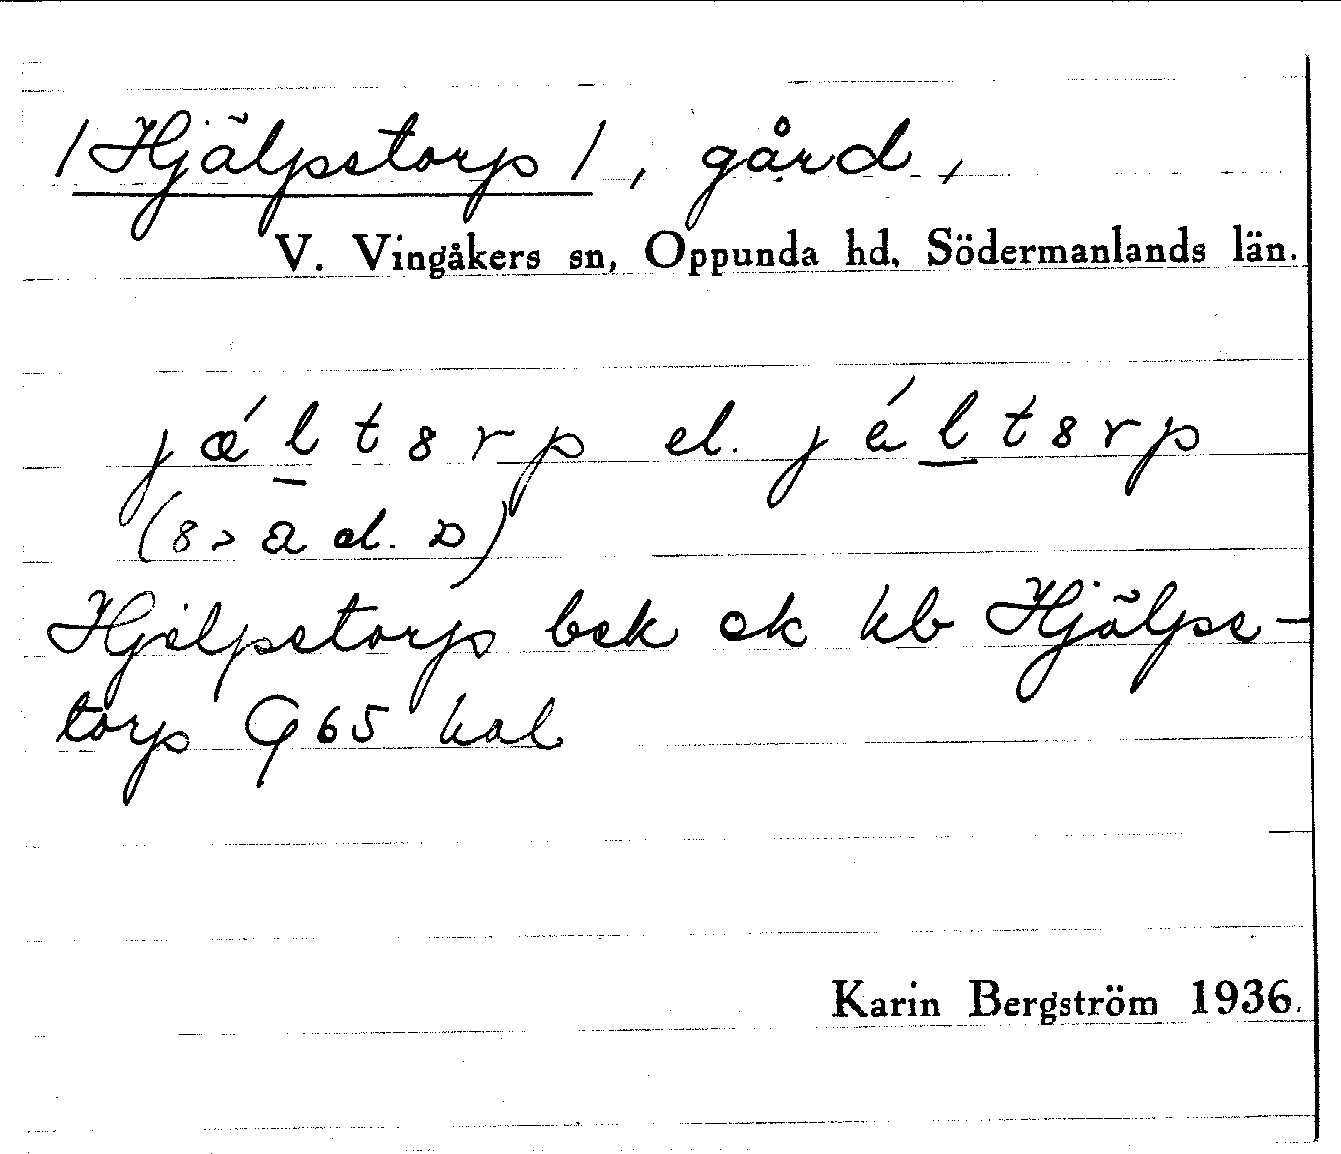 /Hjälpstorp/, gård,
V. Vingåkers sn, Oppunda hd, Södermanlands län.
jǽltȣrp el. jéltȣrp
(ȣ > a el. ɒ)
Hjelpstorp bek ek kb Hjälps-
torp G 65 hal
Karin Bergström 1936.